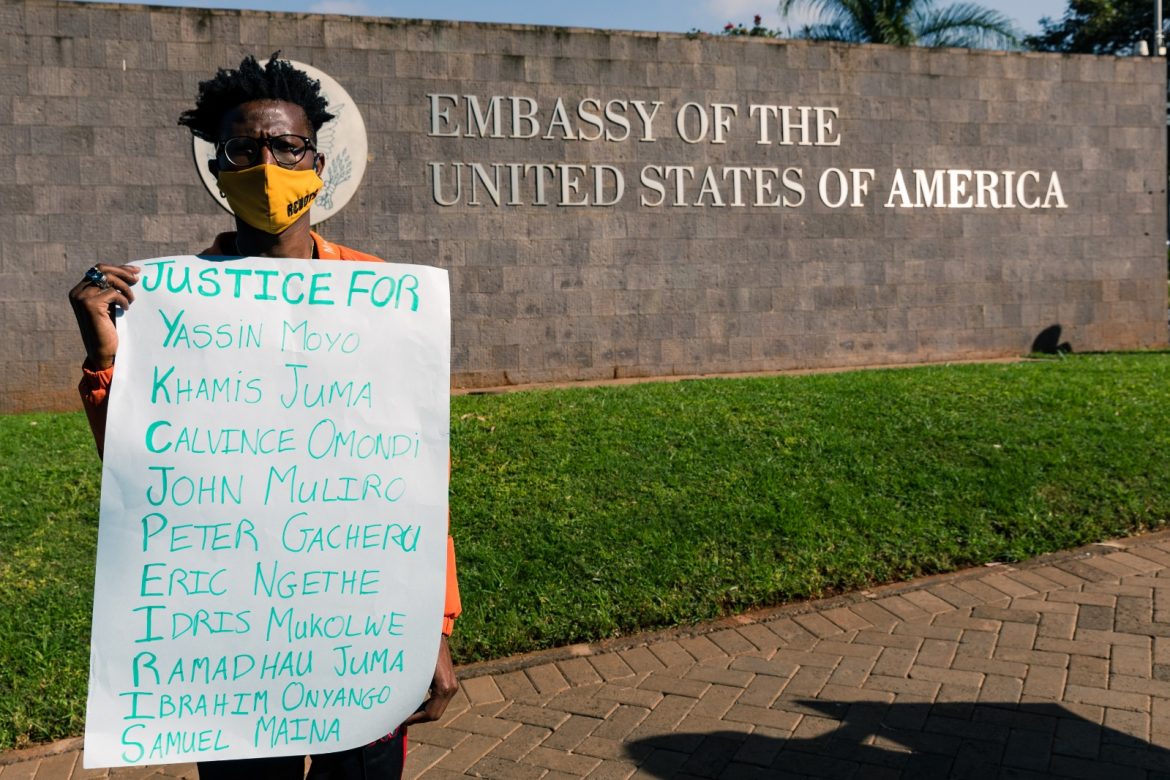 EMBASSY OF THE
UNITED STATES OF AMERICA
JUSTICE FOR
YASSIN MOYO
KHAMIS JUMA
CALVINCE OMONDi
JOHN MULIRO
PETER GACHERU
ERIC NGETHE
IDRIS MUKOLWE
RAMADHAU JUMA
IBRAHIM ONYANGO
SAMUEL MAINA